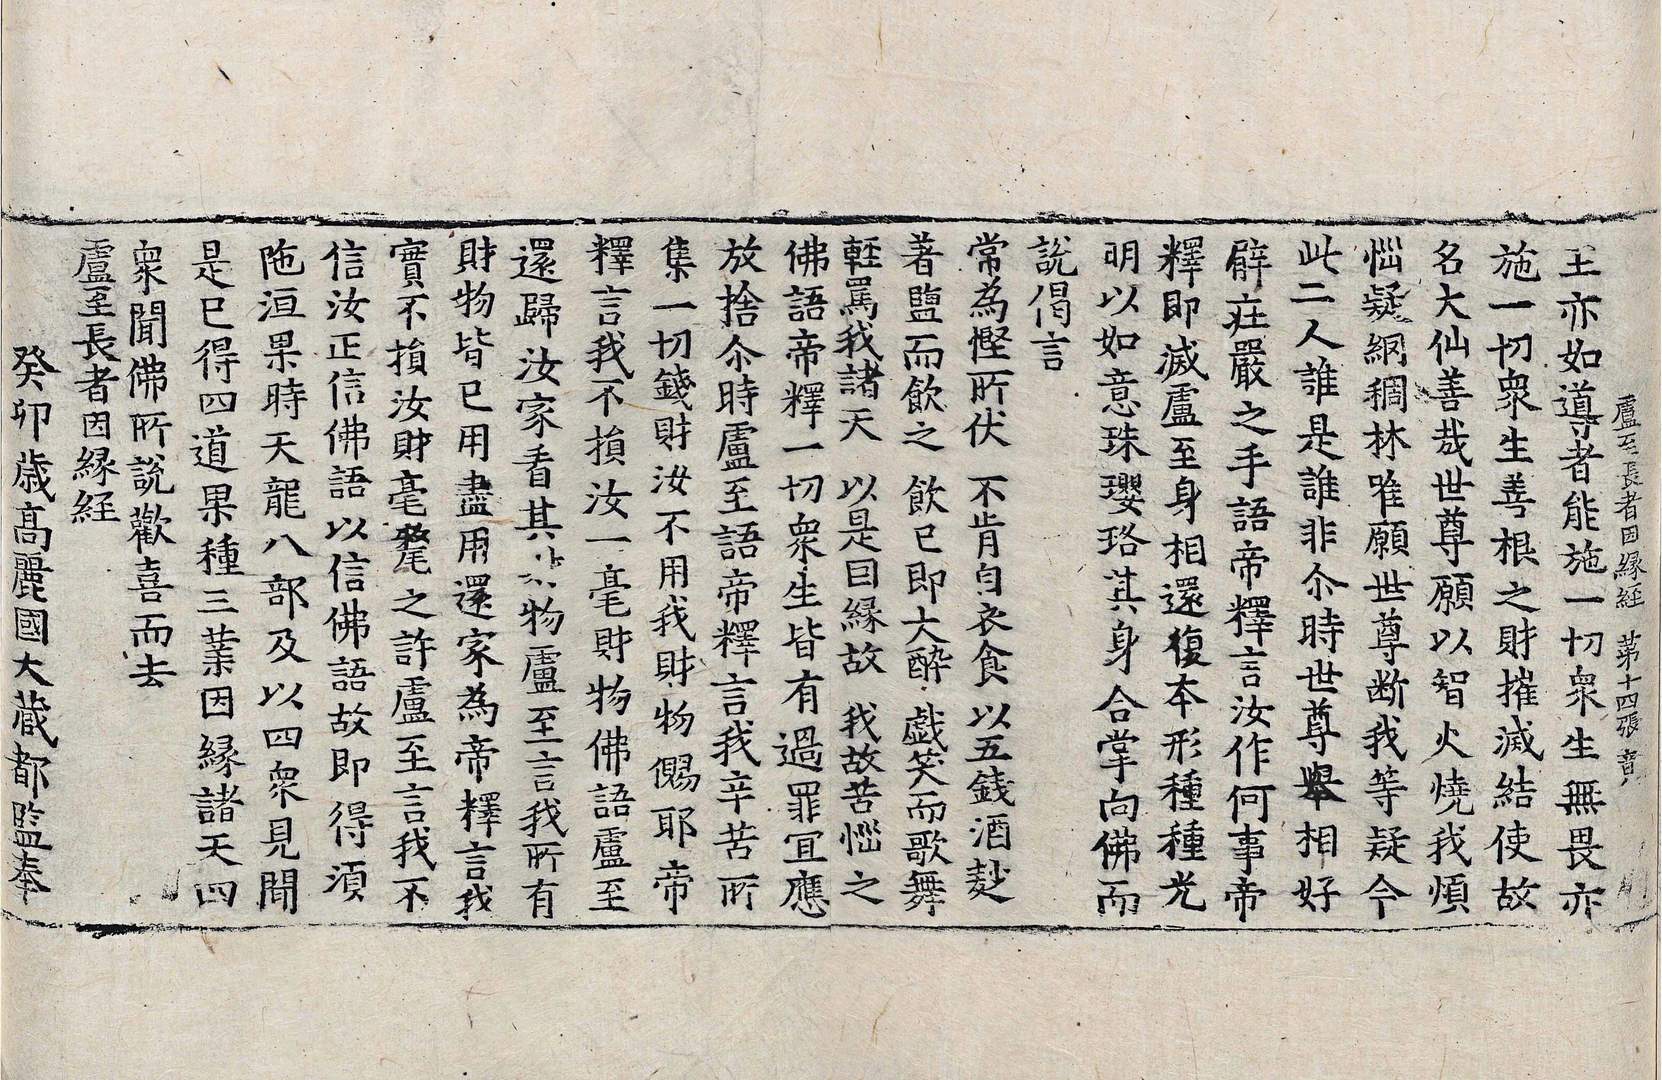 盧至長者因緣経 第十四張
王亦如導者能施一切衆生無畏亦
施一切衆生善根之財摧滅結使故
名大仙善㢤世尊願以智火燒我煩
惱疑網稠林唯願世尊断我等疑今
此二人誰是誰非尒時世尊舉相好
𤩹莊嚴之手語帝釋言汝作何事帝
釋即滅盧至身相還復本形種種光
明以如意珠瓔珞其身合掌向佛而
說偈言
常為慳所伏 不肯自衣食 以五錢酒麨
著鹽而飲之 飲已即大醉 戯笑而歌舞
輕罵我諸天 以是因緣故 我故苦惱之
佛語帝釋一切衆生皆有過罪冝應
放捨尒時盧至語帝釋言我辛苦所
集一切錢財汝不用我財物賜耶帝
釋言我不損汝一毫財物佛語盧至
還歸汝家看其物盧至言我所有
財物皆已用盡用還家為帝釋言我
實不損汝財毫氂之許盧至言我不
信汝正信佛語以信佛語故即得須
陁洹果時天龍八部及以四衆見聞
是已得四道果種三業因緣諸天四
衆聞佛所說歡喜而去
盧至長者因緣経
癸卯歳高麗國大藏都監奉